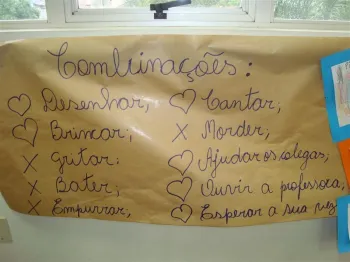 Combinações:
♡ Desenhar;
♡ Brincar;
X Gritar;
X Bater;
X Empurrar;
♡ Cantar;
X Morder;
♡ Ajudar os colegas;
♡ Ouvir a professora;
♡ Esperar a sua vez